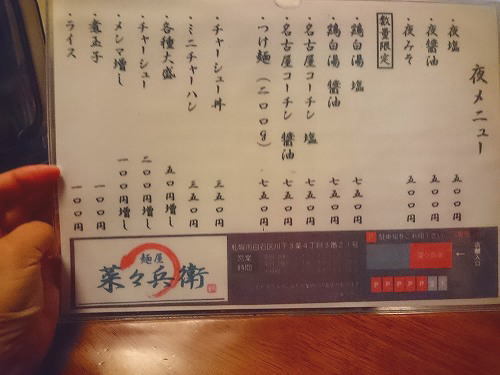 夜メニュー
・夜塩 五〇〇円
・夜醤油 五〇〇円
・夜みそ 五〇〇円
数量限定
・鶏白湯 塩 七五〇円
・鶏白湯 醤油 七五〇円
・名古屋コーチン 塩 七五〇円
・名古屋コーチン 醤油 七五〇円
・つけ麺(二〇〇g) 七五〇円
・チャーシュー丼 三五〇円
・ミニチャーハン 三五〇円
・各種大盛 五〇円増し
・チャーシュー 二〇〇円増し
・メンマ増し 一〇〇円増し
・煮玉子 一〇〇円
・ライス 一〇〇円
麺屋
菜々兵衛
札幌市白石区川下3条4丁目3番21号
営業
時間
P 駐車場をご利用下さい
店舗入口
P P P P